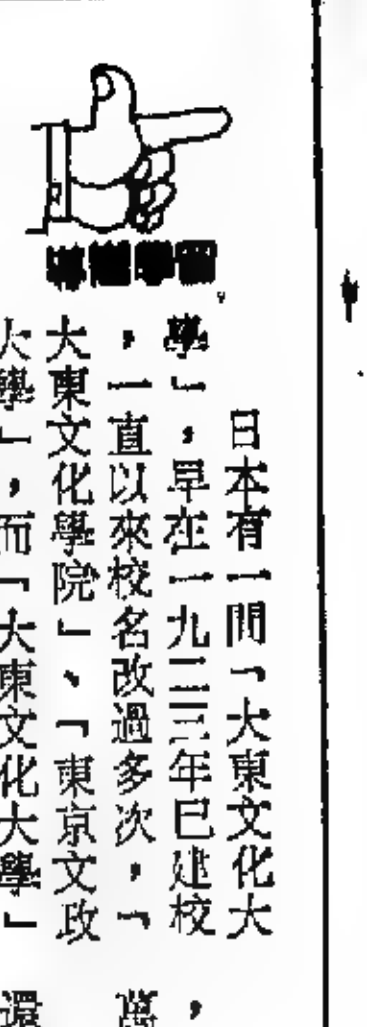 日本有一間「大東文化大
學」，早在一九二三年已建校
，一直以來校名改過多次，「
大東文化學院」、「東京文政
大學」，而「大東文化大學」
，
萬
還